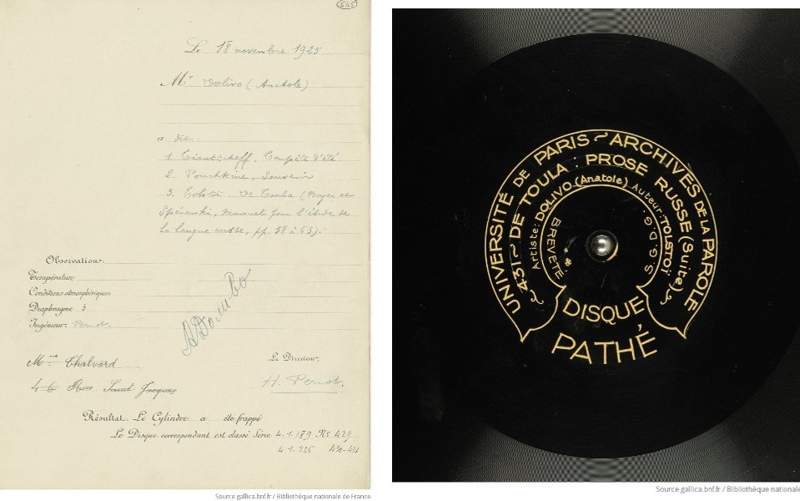 Le 18 novembre 1925
Mr Dolivo (Anatole)
a dit:
1. Tioutscheff, Tempête d'été
2. Pouchkine, Souvenir
3. Tolstoï De Toula (Voyez
Spéranski, Manuel pour l'étude de
la langue russe, pp. 58 à 63).
Observations
Température
Conditions atmosphériques
Diaphragme
Ingénieur: Pernot
A Dolivo
Mme Chalvard
46 Rue Saint Jacques
Le Directeur,
H. Pernot.
Résultat. Le Cylindre a été frappé
Le Disque correspondant est classé Série 4.1.189 No 429
430-431
Source gallica.bnf.fr / Bibliothèque nationale de France
UNIVERSITÉ DE PARIS ~ ARCHIVES DE LA PAROLE
~ 431 ~ DE TOULA : PROSE RUSSE (Suite) ~
Artiste: DOLIVO (Anatole) Auteur: TOLSTOÏ
BREVETÉ S.G.D.G.
DISQUE
PATHÉ
Source gallica.bnf.fr / Bibliothèque nationale de France